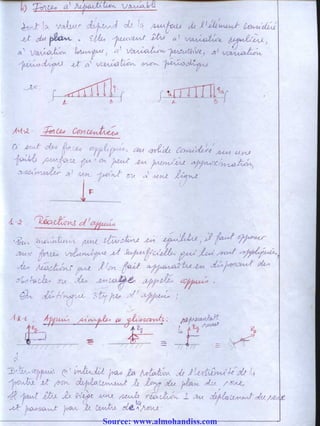 b) Forces à répartition variable
dont la valeur dépend de la surface de l'élément considéré
et du plan. Elles peuvent être à variation régulière,
à variation brusque, à variation progressive, à variation
périodique et à variation non périodique
A B A B
1.1.2. Forces Concentrées
Ce sont des forces appliquées, au solide considéré sur une
faible surface qu'on peut en première approximation,
assimiler à un point ou à une ligne
F
1.2 Réactions d'appuis
maintenir une structure en équilibre, il faut opposer
aux forces volumiques et superficielles qui lui sont appliquées,
des réactions que l'on fait apparaître en disposant des
obstacles ou des appelés appuis.
On distingue 3 types d'appuis :
1.2.1 Appuis simples ou glissants:
≡ ≡
appuis n'interdit pas la rotation de l'extrémité de la
poutre et son déplacement le long du plan du
Il peut être le siège d'une seule réaction ⊥ au déplacement du
et passant par le centre de
Source: www.almohandiss.com